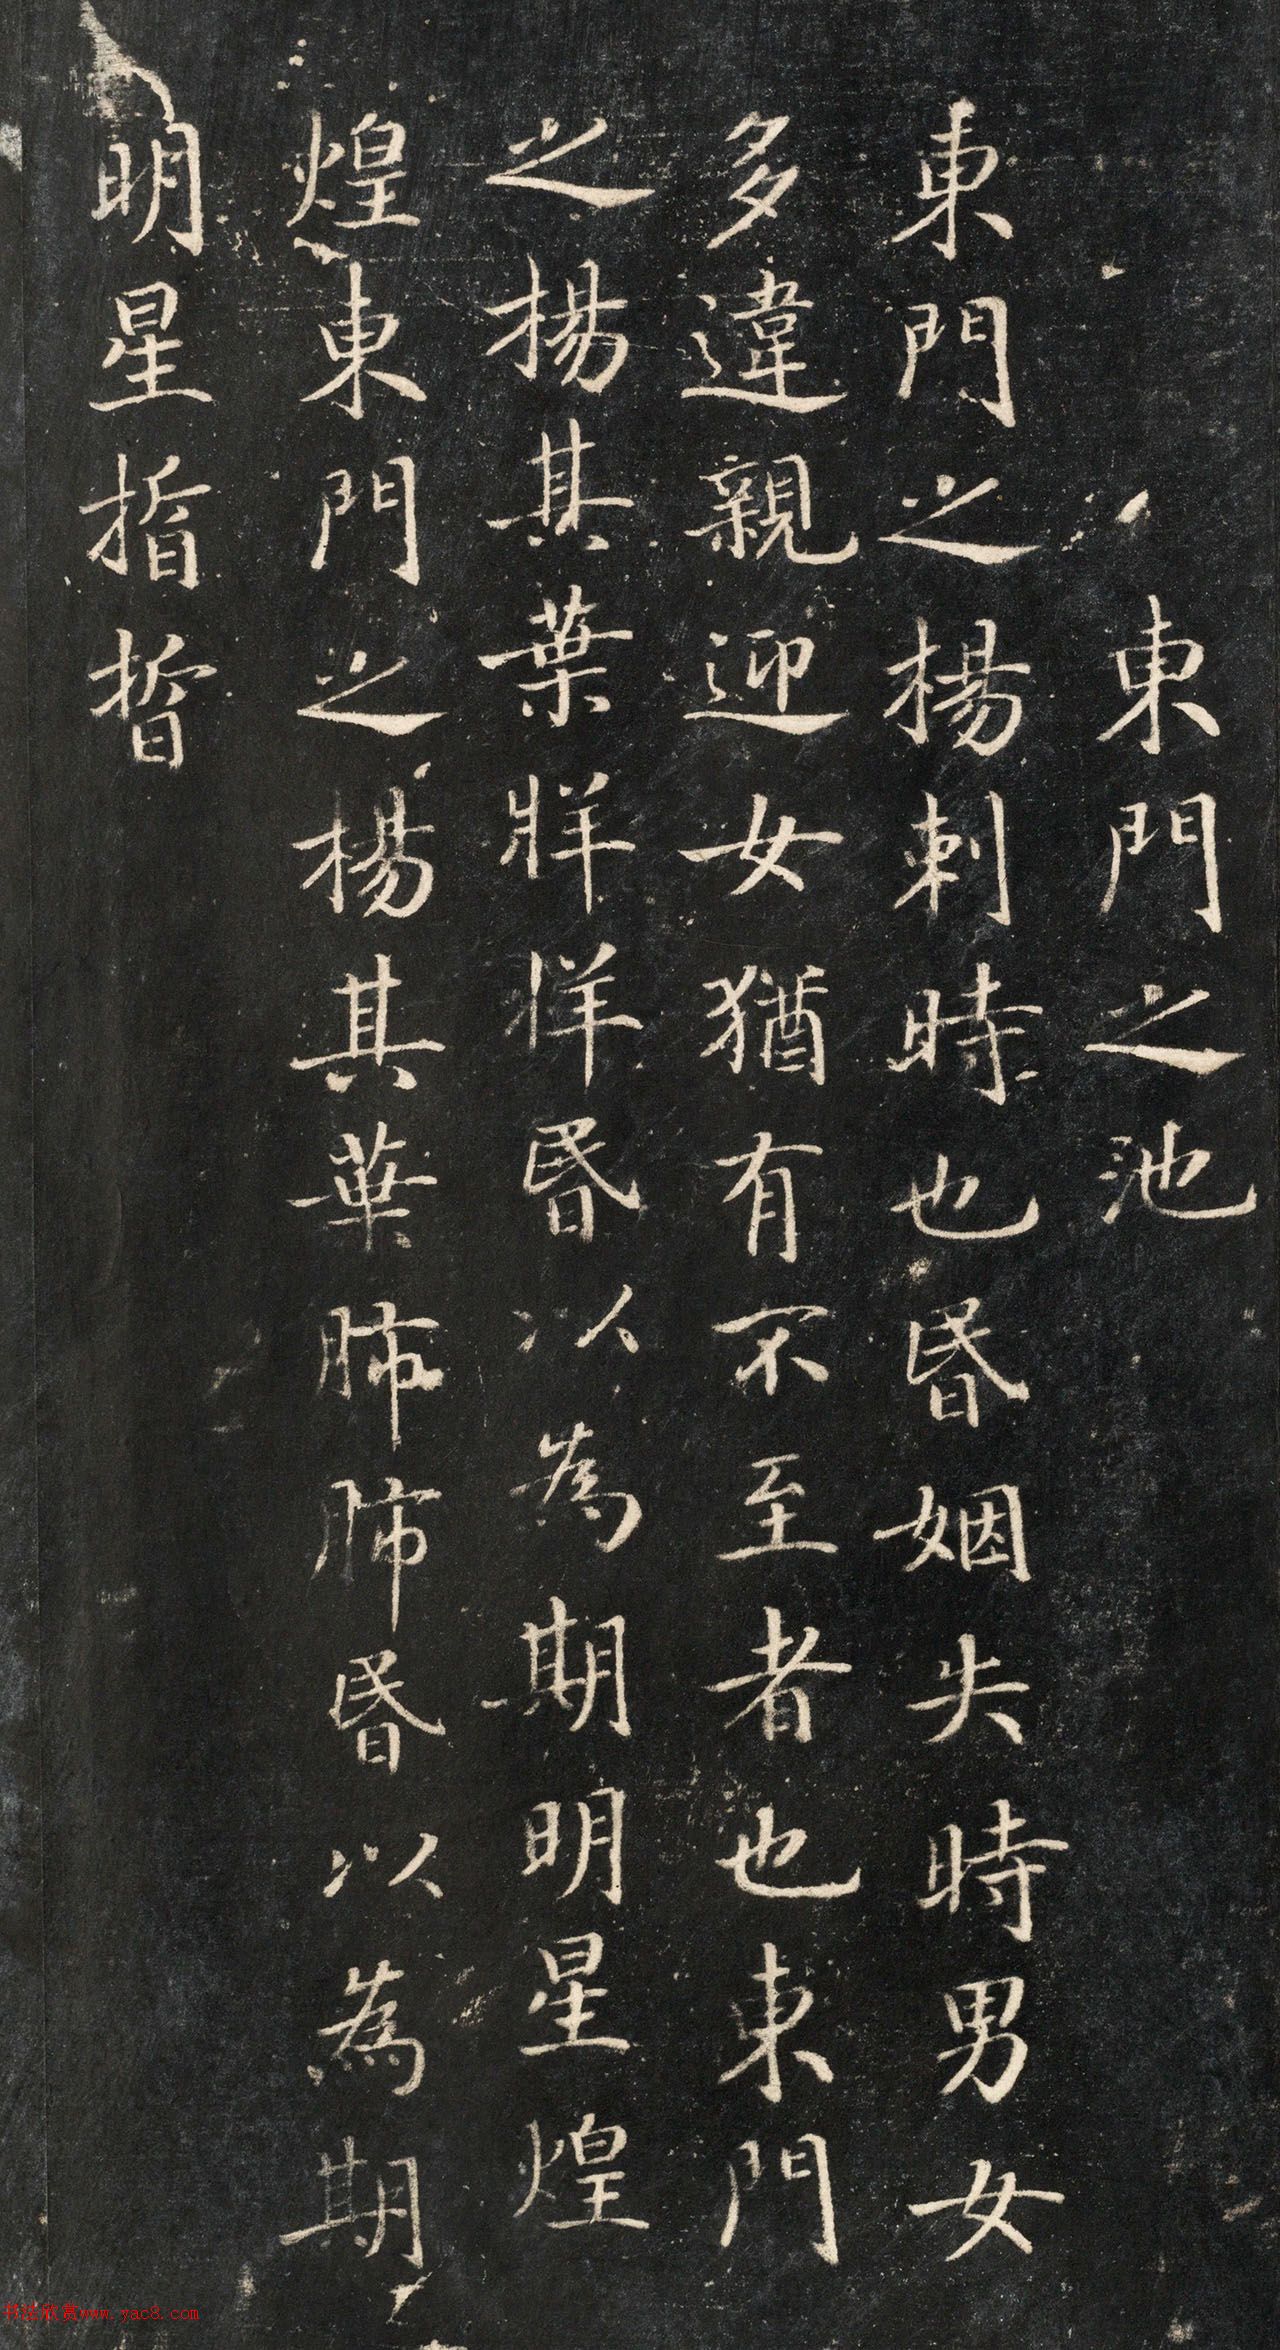 東門之池
東門之楊刺時也昬姻失時男女
多違親迎女猶有不至者也東門
之楊其葉牂牂昬以為期明星煌
煌東門之楊其葉肺肺昬以為期
明星晢晢
书法欣赏www.yac8.com